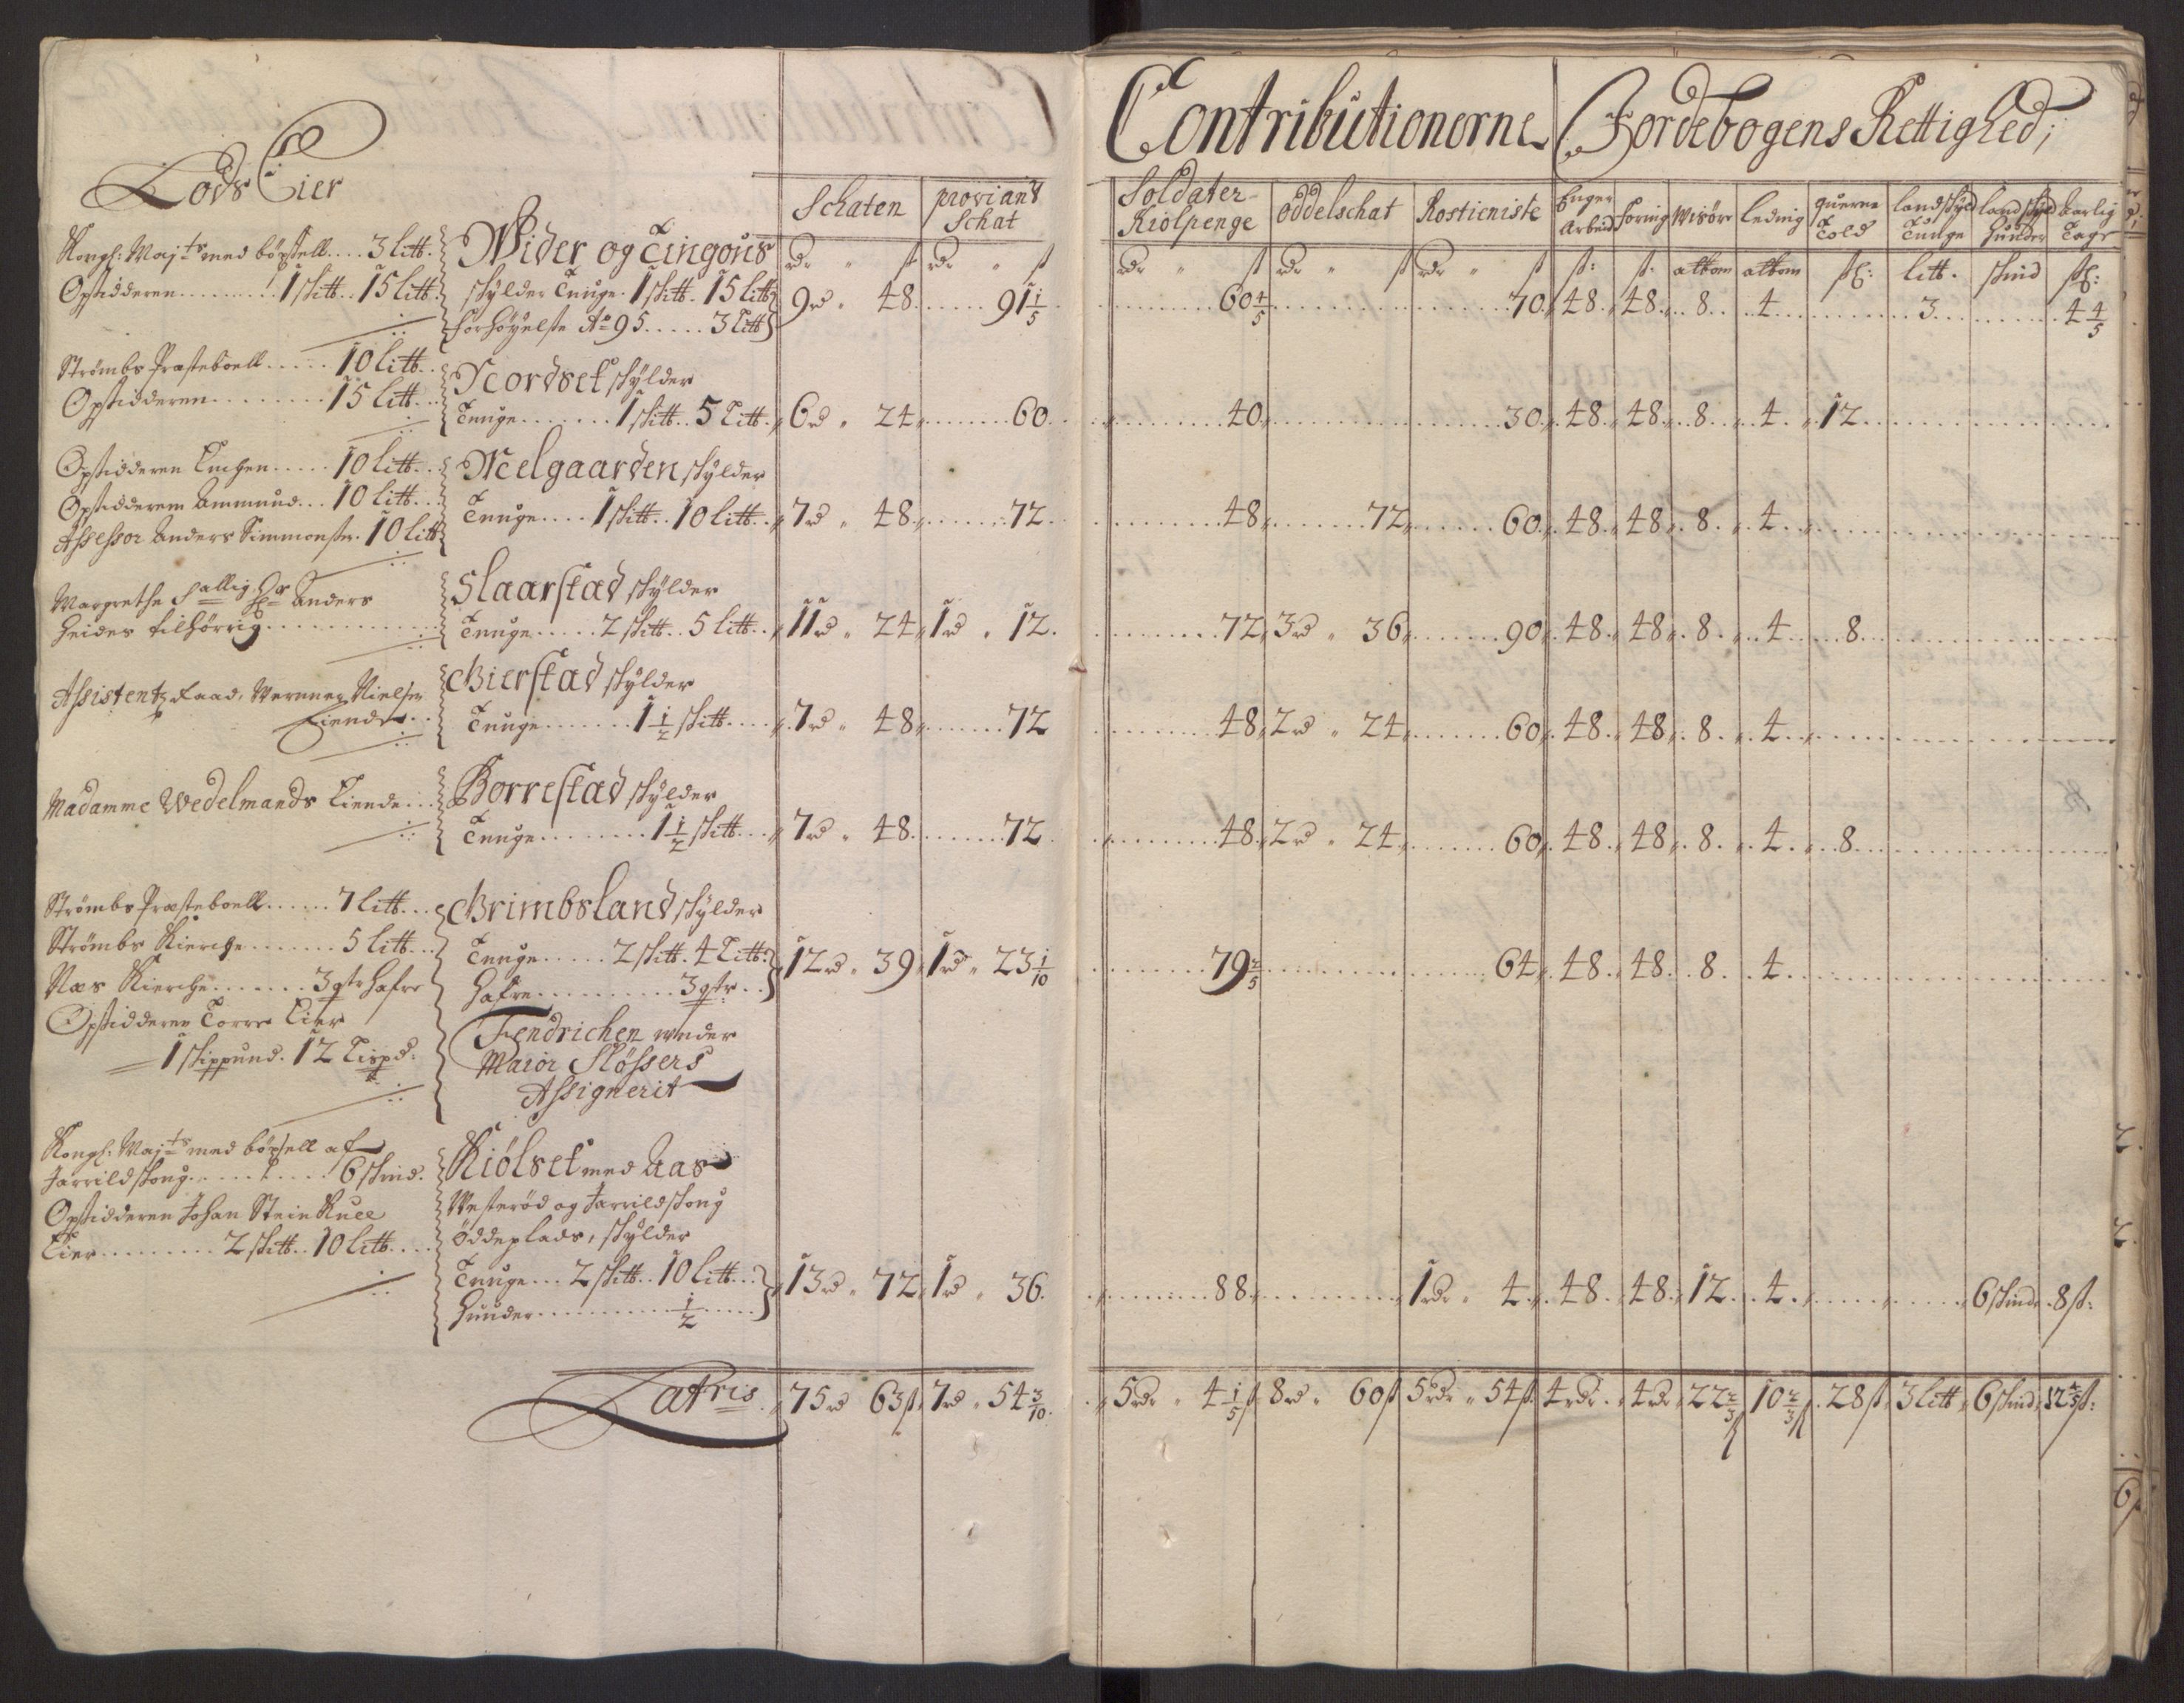 Contributionerne Jordebogens Rettighed;
Lods Eier
Schaten proviant Schat Soldater Kiolpenge Oddelschat Rostieniste Enger Arbeid Foring Wisöre Leding querne Told landskyld Tunge landskyld Huuder Aarlig Tage
rdr ß rdr ß rdr ß rdr ß rdr ß ß: ß: album album ß: litt. skind ß:
Kongl: Majts med böxsell.... 3 litt.
Opsidderen......... 1 skitt.. 15 litt.
Wider og Tingous
skylder Tunge. 1 skitt. 15 litt
forhöyelse Ao 95..... 3 Litt
9rd 48 91 1/5 60 4/5 70 48 48 8 4 3 4 4/5
Strömbs Præsteboell...... 10 litt..
Opsidderen......... 15 litt..
Nordset skylder
Tunge....... 1 skitt.. 5 Litt.
6rd 24 60 40 30 48 48 8 4 12
Opsidderen Engen..... 10 litt..
Opsidderen Ammund... 10 litt..
Assessor Anders Simmensen. 10 litt
Melgaarden skylder
Tunge.... 1 skitt.. 10 litt..
7rd 48 72 48 72 60 48 48 8 4
Margrethe Sallig Hr Anders
Heides tilhörrig..............
Slaarstad skylder
Tunge..... 2 skitt.. 5 litt..
11rd 24 1rd 12 72 3rd 36 90 48 48 8 4 8
Assistentz Raad, Wernner Nielsen
Eiende..
Bierstad skylder
Tunge....... 1 1/2 skitt....
7rd 48 72 48 2rd 24 60 48 48 8 4
Madamme Wedelmands Eiende...
Borrestad skylder
Tunge........ 1 1/2 skitt...
7rd 48 72 48 2rd 24 60 48 48 8 4 8
Strömbs Præsteboell...... 7 litt...
Strömbs Kierche........ 5 litt...
Næs Kierche....... 3 qtr hafre
Opsidderen Torre Eier
1 skippund. 12 Lispd:
Brimbsland skylder
Tunge..... 2 skitt. 4 Litt:
Hafre.......... 3 qtr..
Fendrichen under
Maior Slössers
Assignerit
12rd 39 1rd 23 1/10 79 2/5 64 48 48 8 4
Kongl: Majts med böxsell af
Jarrildskoug......... 6 skind.
Opsidderen Johan Stein Kuee
Eier......... 2 skitt.. 10 litt....
Kiölset med Aas
Westeröd og Jarrildskoug
öddeplads, skylder
Tunge... 2 skitt.. 10 litt...
Huuder........... 1/2 .....
13rd 72 1rd 36 88 1rdr 4 48 48 12 4 6 skind 8ß:
Latris 75rd 63ß 7rd 54 3/10 5rdr 4 1/5ß 8rd 60ß 5rdr 54ß 4rdr 4rdr 22 2/3ß 10 2/3ß 28ß 3 litt 6 skind 12 4/5ß: